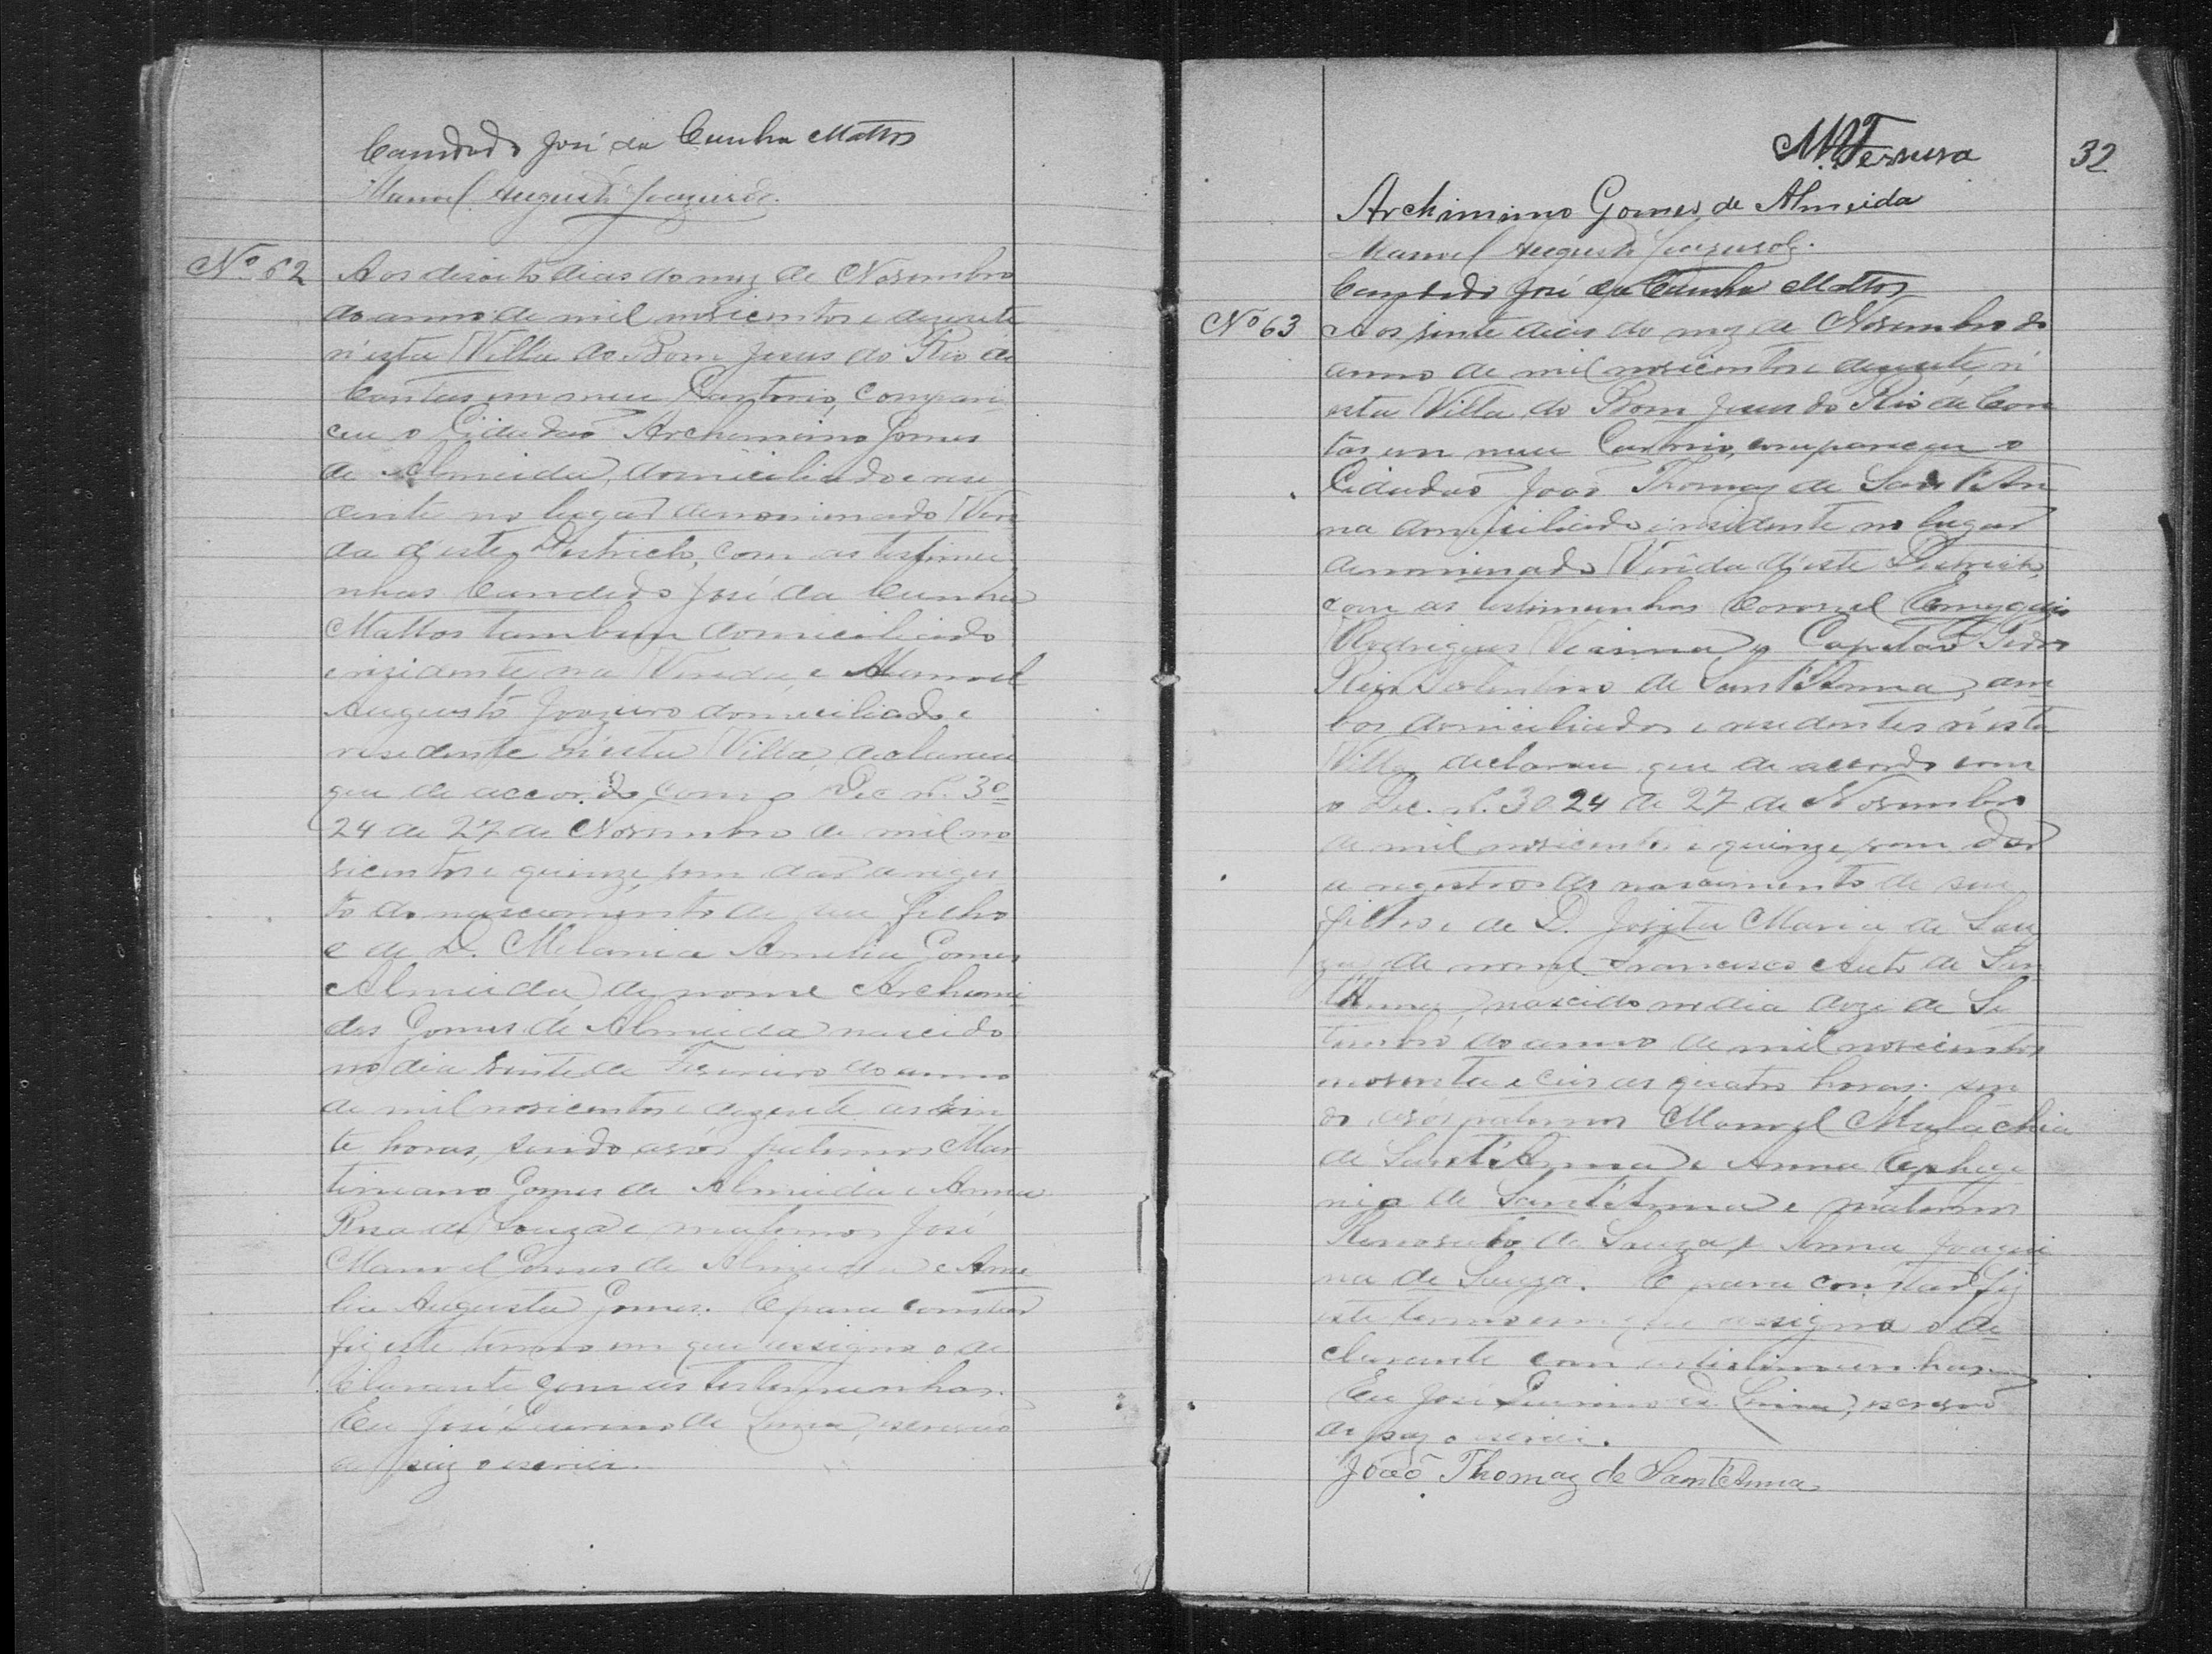 Candido José da Cunha Mattos
Manoel Augusto Joazeiro
Nº 62
Aos desoito dias do mez de Novembro
do anno de mil novicentos e dezesete
n'esta Villa do Bom Jesus do Rio de
Contas em meu Cartorio, compare
ceu o Cidadão Archimino Gomes
de Almeida, domiciliado e resi
dente no lugar denominado Vere
da d'este Districto, com as testimu
nhas Candido José da Cunha
Mattos tambem domiciliado
e rezidente na Vereda, e Manoel
Augusto Joazeiro domiciliado e
residente n'esta Villa, declarou
que de accordo com o Dec nº. 30
24 de 27 de Novembro de mil no
vicentos e quinze, vem dar a regis
to do nascimento de seu filho
e de D. Melania Amelia Gomes
Almeida de nome Archimi
des Gomes de Almeida nascido
no dia vinte de Fevereiro do anno
de mil novicentos e dezesete as vin
te horas, sendo avós paternos Mar
tiniano Gomes de Almeida e Anna
Rosa de Souza e maternos José
Manoel Gomes de Almeida e Ame
lia Augusta Gomes. E para constar
fiz este termo em que assigna o de
clarante com as testimunhas.
Eu José de Lima, escrivão
de paz o escrevi.
32
Archimimo Gomes de Almeida
Manoel Augusto Joazeiro
Candido José da Cunha Mattos
Nº 63
Aos vinte dias do mez de Novembro do
anno de mil novicentos e dezesete, n'
esta Villa do Bom Jesus do Rio de Con
tas em meu Cartorio, compareceu o
Cidadão João Thomaz de Sant'An
na domiciliado e residente no lugar
denominado Verêda d'este Districto,
com as testimunhas Coronel
Rodrigues Vianna e Capitão Pedro
de Sant'Anna, am
bos domiciliados e residentes n'esta
Villa declarou que de accordo com
o Dec. nº. 3024 de 27 de Novembro
de mil novicentos e quinze, vem dar
a registro do nascimento de seu
filho e de D. Maria de Sou
za de nome Francisco de San
t'Anna, nascido no dia doze de Se
tembro do anno de mil novicentos
as quatro horas: sen
do avós paternos Manoel Malachia
de Sant'Anna e Anna Ephige
nia de Sant'Anna e maternos
de Souza e Anna Joaqui
na de Souza. E para constar fiz
este termo em que assigna o de
clarante com as testimunhas.
Eu José de Lima, escrivão
de paz o escrevi.
João Thomaz de Sant'Anna